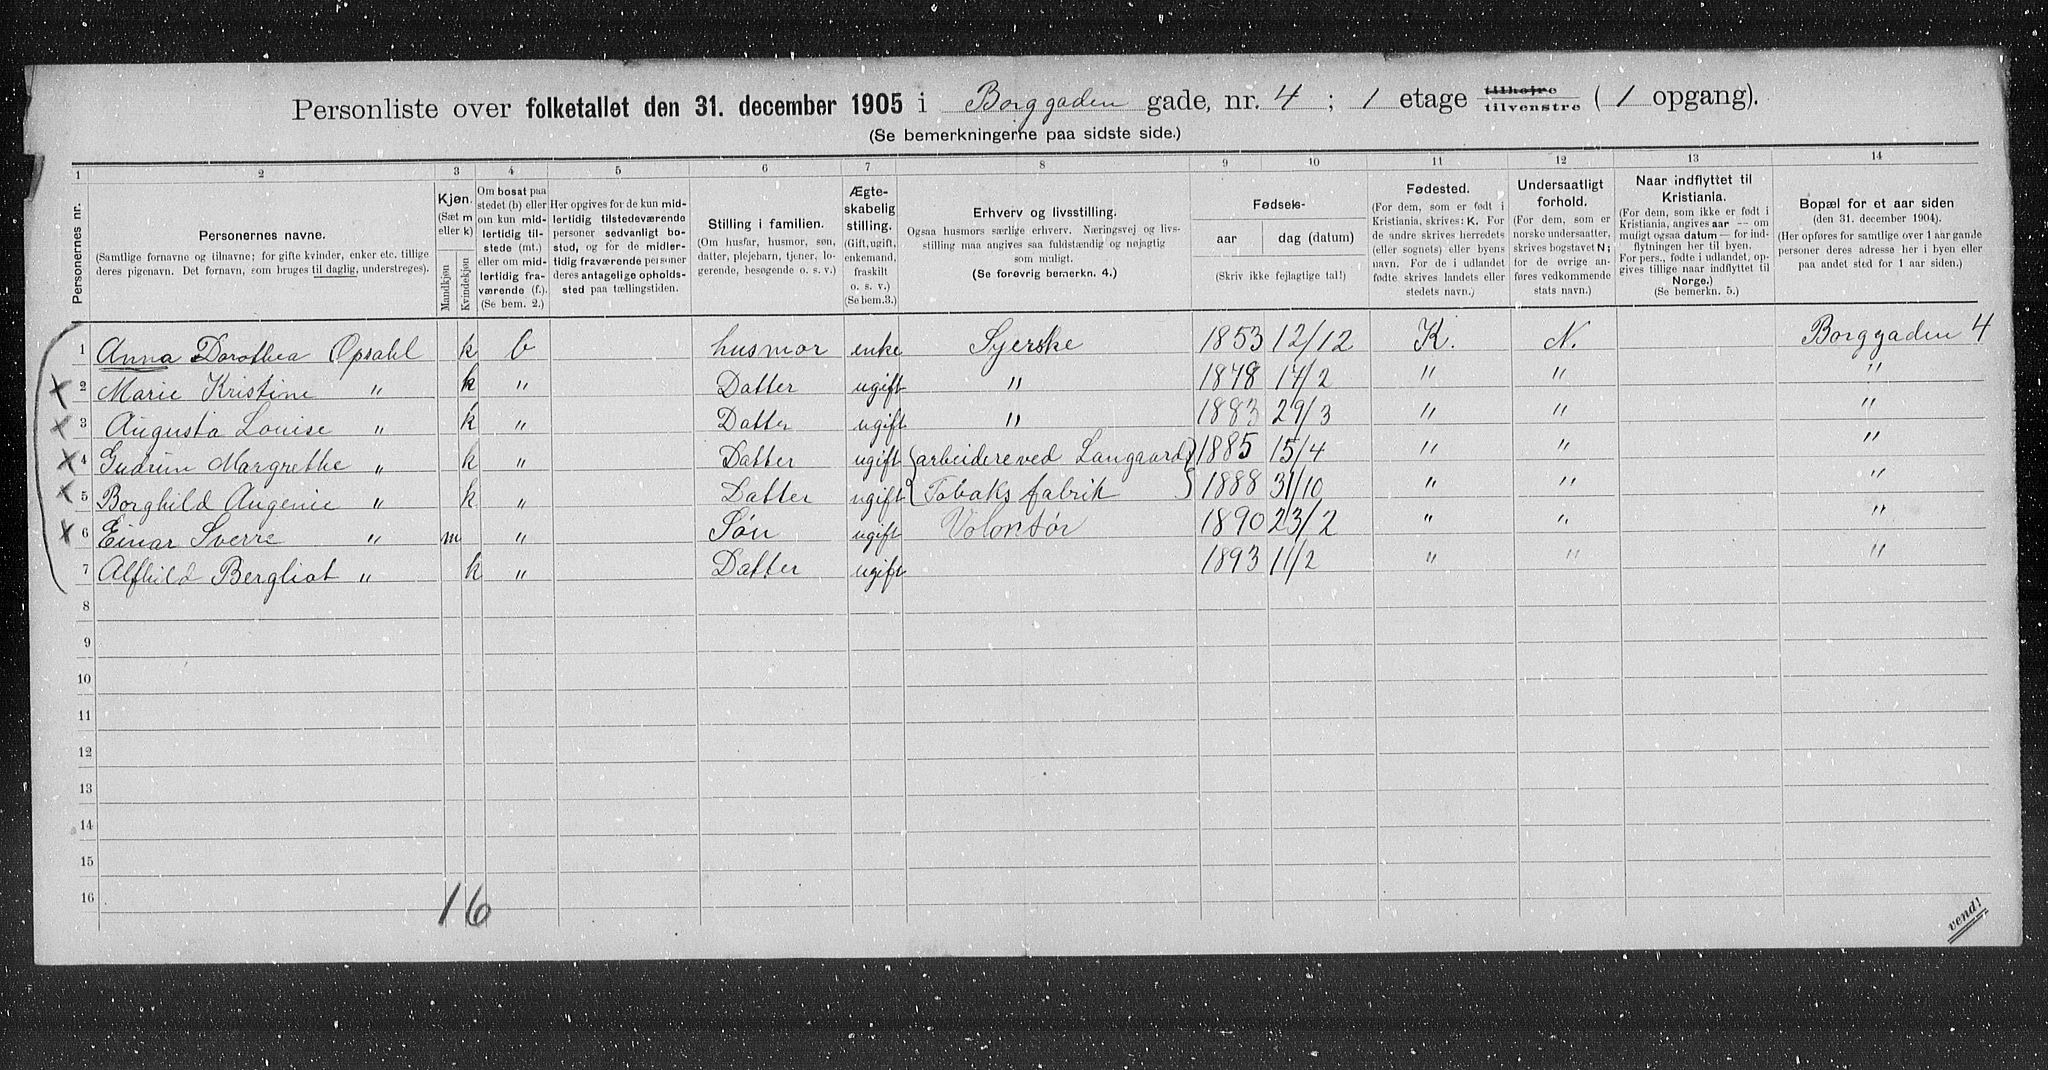 Personliste over folketallet den 31. december 1905 i Borggaden gade, nr. 4 ; 1 etage tilhøjre tilvenstre ( 1 opgang).
(Se bemerkningerne paa sidste side.)
1 2 3 4 5 6 7 8 9 10 11 12 13 14
Personernes nr.
Personernes navne.
(Samtlige fornavne og tilnavne; for gifte kvinder, enker etc. tillige
deres pigenavn. Det fornavn, som bruges til daglig, understreges).
Kjøn.
(Sæt m
eller k)
Mandkjøn
Kvindekjøn
Om bosat paa
stedet (b) eller
om kun mid-
lertidig til-
stede (mt.)
eller om mid-
lertidig fra-
værende (f.).
(Se bem. 2.)
Her opgives for de kun mid-
lertidig tilstedeværende
personer sedvanlig bo-
stud, og for de midler-
tidig fraværende personer
deres antagelige opholds-
sted paa tællingstiden.
Stilling i familien.
(Om husfar, husmor, søn,
datter, plejebarn, tjener, lo-
gerende, besøgende o. s. v.)
Ægte-
skabelig
stilling.
(Gift, ugift,
enkemand,
fraskilt
o. s. v.)
(Se bem.3.)
Erhverv og livsstilling.
Ogsaa husmors særlige erhverv. Næringsvej og livs-
stilling maa angives saa fuldstændig og nøjagtig
som muligt.
(Se forøvrig bemerkn. 4.)
Fødsels-
aar dag (datum)
(Skriv ikke fejlagtige tal!)
Fødested.
(For dem, som er født i
Kristiania, skrives: K. For
de andre skrives herredets
(eller sognets) eller byens
navn. For de i udlandet
fødte skrives landets eller
stedets navn.)
Undersaatligt
forhold.
(For dem, som er
norske undersaatter,
skrives bogstavet N;
for de øvrige an-
føres vedkommende
stats navn.)
Naar indflyttet til
Kristiania.
(For dem, som ikke er født i
Kristiania, angives aar — om
muligt ogsaa datum — for ind-
flytningen her til byen.
For pers., fødte i udlandet, op-
gives tillige naar indflyttet til
Norge.)
(Se bemerkn. 5.)
Bopæl for et aar siden
(den 31. december 1904).
(Her opføres for samtlige over 1 aar gamle
personer deres adresse her i byen eller
paa andet sted for 1 aar siden.)
1 Anna Dorothea Opsahl k b husmor enke Syerske 1853 12/12 K. N. Borggaden 4
x 2 Marie Kristine " k " Datter ugift " 1878 17/2 " " "
x 3 Augusta Louise " k " Datter ugift " 1883 29/3 " " "
x 4 Gudrun Margrethe " k " Datter ugift { arbeidere ved Langaard } 1885 15/4 " " "
x 5 Borghild Augenie " k " Datter ugift { Tobaksfabrik } 1888 31/10 " " "
x 6 Einar Sverre " m " Søn ugift Volontør 1890 23/2 " " "
7 Alfhild Bergliot " k " Datter ugift 1893 11/2 " " "
8
9
10
11
12
13
14
15
16
1 6
vend!